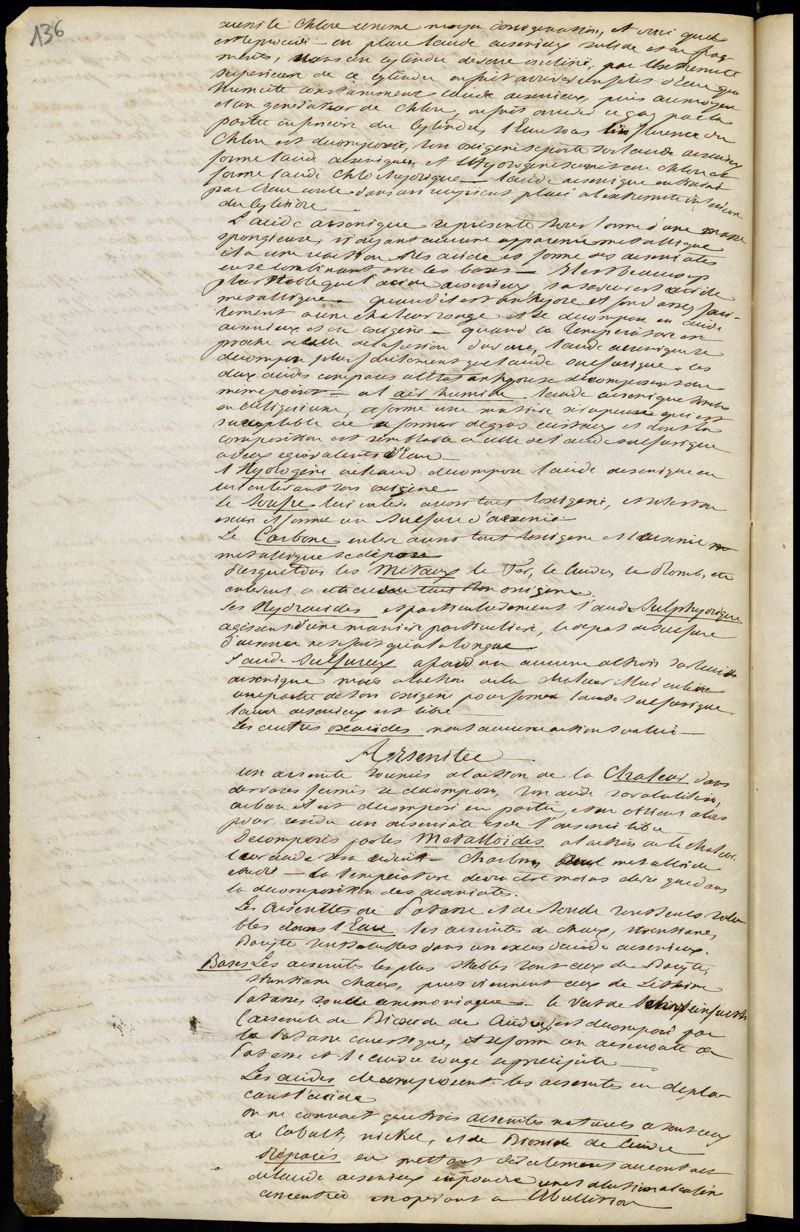 136
aussi le Chlore comme moyen d'oxigenation, et voici quel
est le procédé. on place l'acide arsenieux solide et en frag
ments, dans un cylindre de verre incliné, par l'extremité
superieure de ce cylindre on fait arriver un filet d'eau qui
humecte constamment l'acide arsenieux, puis au moyen
d'un generateur de Chlore, on fait arriver ce gaz par la
partie inferieure du Cylindre, l'Eau sous l'influence du
Chlore est decomposée, son oxigene se porte sur l'acide arsenieux
forme l'acide arsenique, et l'Hydrogene s'unit au Chlore et
forme l'acide Chlorhydrique — l'acide arsenique entrainé
par l'eau coule dans un recipient placé a l'extremité inferieure
du Cylindre
L'acide arsenique se presente sous forme d'une masse
spongieuse, n'ayant aucune apparence metallique
il a une reaction très acide et forme des arseniates
en se combinant avec les bases — Il est beaucoup
plus stable que l'acide arsenieux, sa saveur est acide
metallique — quand il est anhydre et fond assez faci-
lement a une chaleur rouge et se decompose en acide
arsenieux et en oxigene — quand la temperature est
proche de celle de la fusion du verre, l'acide arsenique se
decompose plus facilement que l'acide sulfurique. ces
deux acides comparés a l'état anhydre se decomposent au
meme point — a l'air humide l'acide arsenique tombe
en deliquium, et forme une matiere sirupeuse qui est
susceptible de former de gros cristaux et dont la
composition est semblable a celle de l'acide sulfurique
a deux equivalents d'Eau
l'Hydrogène à chaud decompose l'acide arsenique en
lui enlevant son oxigène
le Soufre lui enleve aussi tout l'oxigene, et
exces il forme un sulfure d'arsenic
Le Carbone enleve aussi tout l'oxigene et l'arsenic
metallique se depose
Presque tous les Métaux le Fer, le Cuivre, le Plomb, etc
enlevent a cet acide tout son oxigene.
Les Hydracides et particulierement l'acide Sulphydrique
agissent d'une maniere particuliere, le depot de sulfure
d'arsenic ne se fait qu'a la longue
L'acide Sulfureux a froid n'a aucune action sur l'acide
arsenique mais a l'action de la chaleur il lui enleve
une partie de son oxigène pour former l'acide sulfurique
l'acide arsenieux est libre
Les autres oxacides n'ont aucune action sur lui —
Arsenites
un arsenite soumis a l'action de la Chaleur dans
des vases fermés se decompose, son acide se volatilise,
ou bien il est decomposé en partie, et on obtient alors
pour residu un arseniate et de l'arsenic libre
Decomposés par les Metalloïdes a l'action de la chaleur
leur acide est reduit — Charbon seul metalloïde
— la temperature devra etre moins elevée que dans
la decomposition des arseniates.
Les arsenites de Potasse et de Soude sont seuls solu
bles dans l'Eau les arsenites de chaux, strontiane,
Baryte sont solubles dans un exces d'acide arsenieux.
Bases Les arsenites les plus stables sont ceux de Baryte,
strontiane chaux, puis viennent ceux de Lithine
Potasse soude ammoniaque — le Vert de Schweinfurth
l'arsenite de Bioxide de Cuivre est decomposé par
la Potasse caustique, et se forme un arseniate de
Potasse et le cuivre rouge se precipite —
Les acides decomposent les arsenites en depla
cant l'acide
on ne connait que trois arsenites natures ce sont ceux
de Cobalt, nickel, et de Bioxide de Cuivre
Préparés en mettant directement au contact
de l'acide arsenieux en poudre une dissolution alcaline
concentrée en operant a l'Ebullition